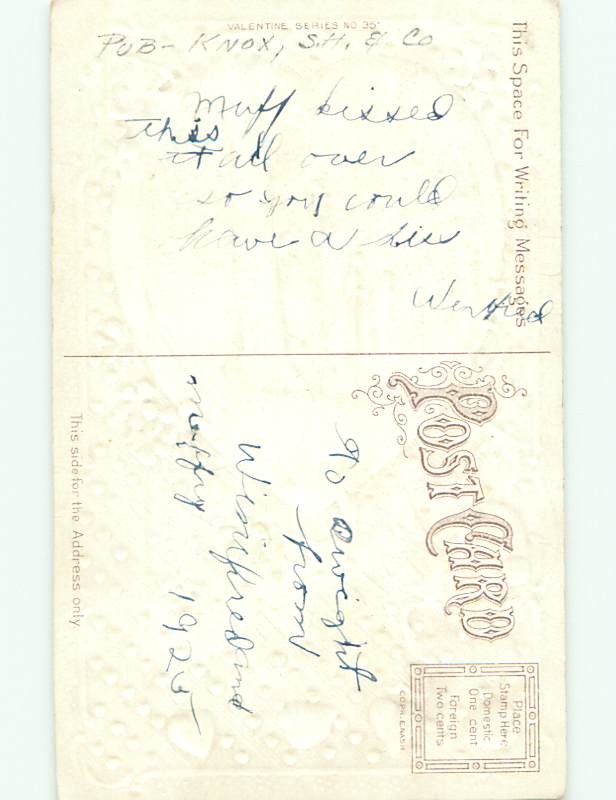 VALENTINE SERIES NO 35
PUB- KNOX, S.H. & CO
This Space For Writing Messages
Muff kissed
this
it all over
so you could
have a kiss
POST CARD
Place
Stamp Here
Domestic
One cent
Foreign
Two cents
COPR. E.NASH
To Dwight
from
Winifred and
1925
This side for the Address only.